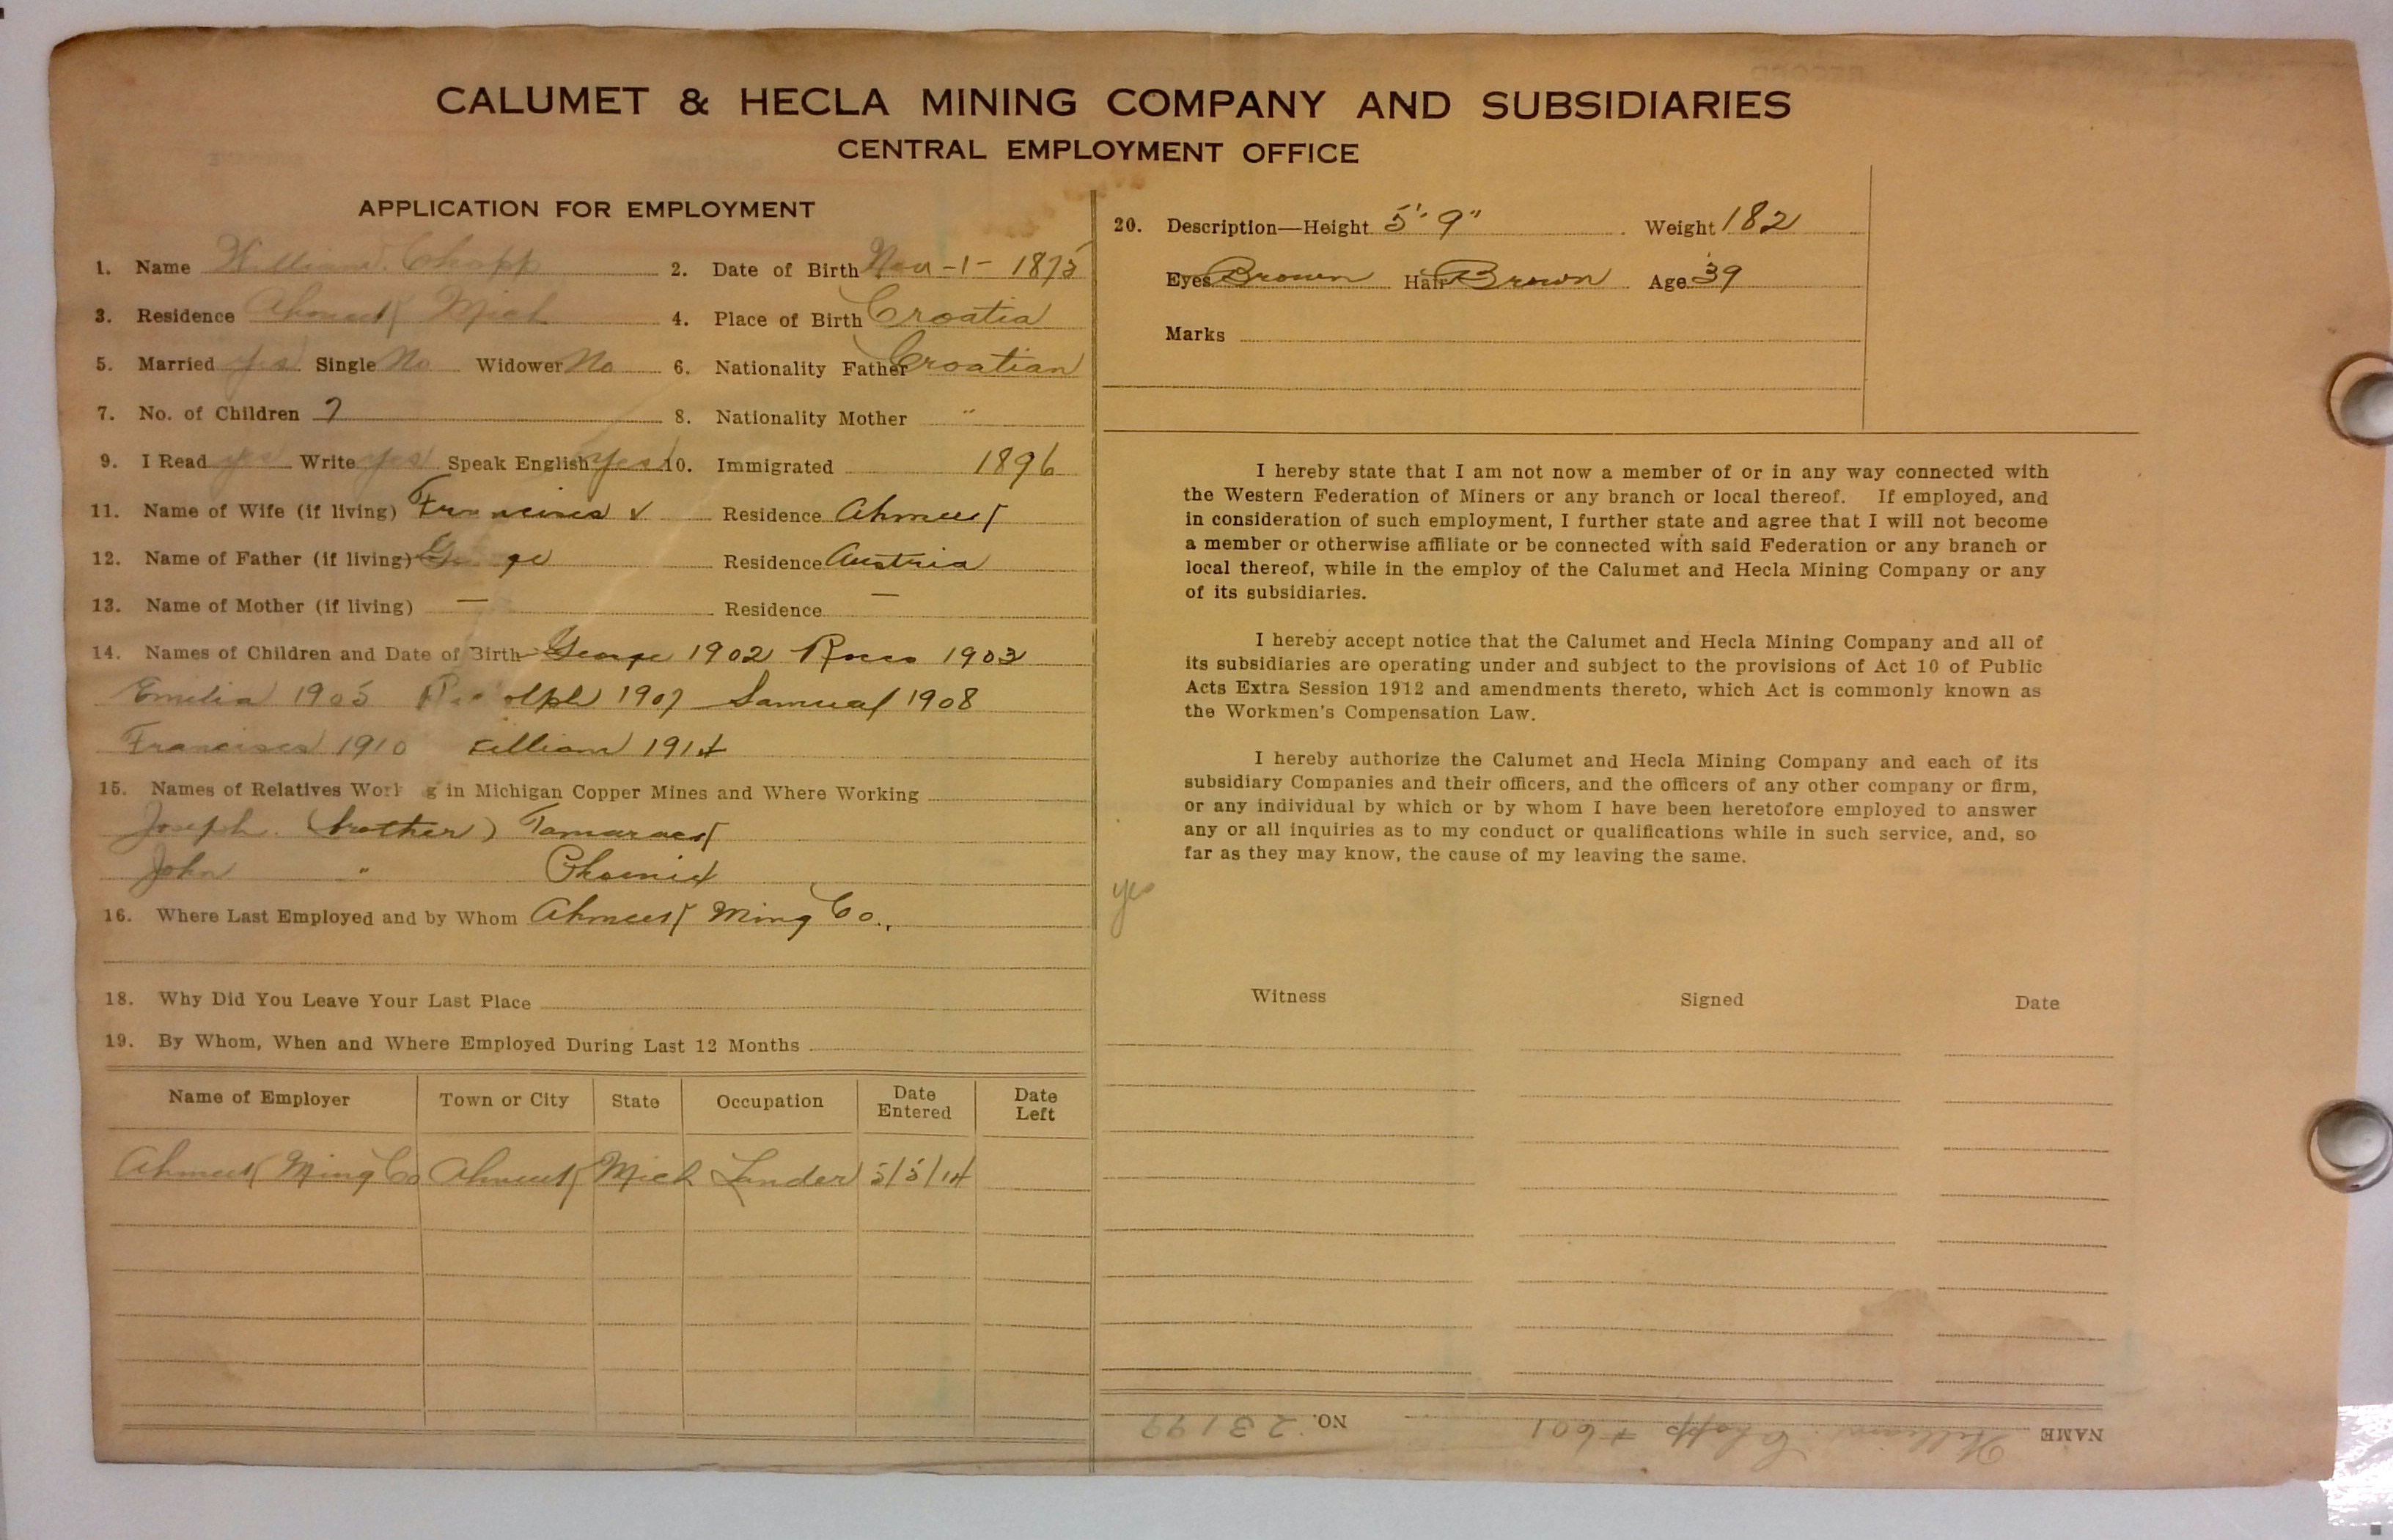 CALUMET & HECLA MINING COMPANY AND SUBSIDIARIES
CENTRAL EMPLOYMENT OFFICE
APPLICATION FOR EMPLOYMENT
1. Name William Chopp 2. Date of Birth Nov-1-1875
3. Residence Ahmeek Mich 4. Place of Birth Croatia
5. Married yes Single No Widower No 6. Nationality Father Croatian
7. No. of Children 7 8. Nationality Mother "
9. I Read yes Write yes Speak English yes 10. Immigrated 1896
11. Name of Wife (if living) Francisca Residence Ahmeek
12. Name of Father (if living) Residence Austria
13. Name of Mother (if living) — Residence —
14. Names of Children and Date of Birth George 1902 1903
Emilia 1905 1907 Samual 1908
Francisca 1910 1914
15. Names of Relatives Work g in Michigan Copper Mines and Where Working
Joseph (brother) Tamarack
John " Phoenix
16. Where Last Employed and by Whom Ahmeek Ming Co.,
18. Why Did You Leave Your Last Place
19. By Whom, When and Where Employed During Last 12 Months
Name of Employer Town or City State Occupation Date Entered Date Left
Ahmeek Ming Co Ahmeek Mich Lander 5/5/14
20. Description—Height 5' 9" Weight 182
Eyes Brown Hair Brown Age 39
Marks
I hereby state that I am not now a member of or in any way connected with
the Western Federation of Miners or any branch or local thereof. If employed, and
in consideration of such employment, I further state and agree that I will not become
a member or otherwise affiliate or be connected with said Federation or any branch or
local thereof, while in the employ of the Calumet and Hecla Mining Company or any
of its subsidiaries.
I hereby accept notice that the Calumet and Hecla Mining Company and all of
its subsidiaries are operating under and subject to the provisions of Act 10 of Public
Acts Extra Session 1912 and amendments thereto, which Act is commonly known as
the Workmen's Compensation Law.
I hereby authorize the Calumet and Hecla Mining Company and each of its
subsidiary Companies and their officers, and the officers of any other company or firm,
or any individual by which or by whom I have been heretofore employed to answer
any or all inquiries as to my conduct or qualifications while in such service, and, so
far as they may know, the cause of my leaving the same.
yes
Witness Signed Date
NAME William Chopp #601 NO. 23199